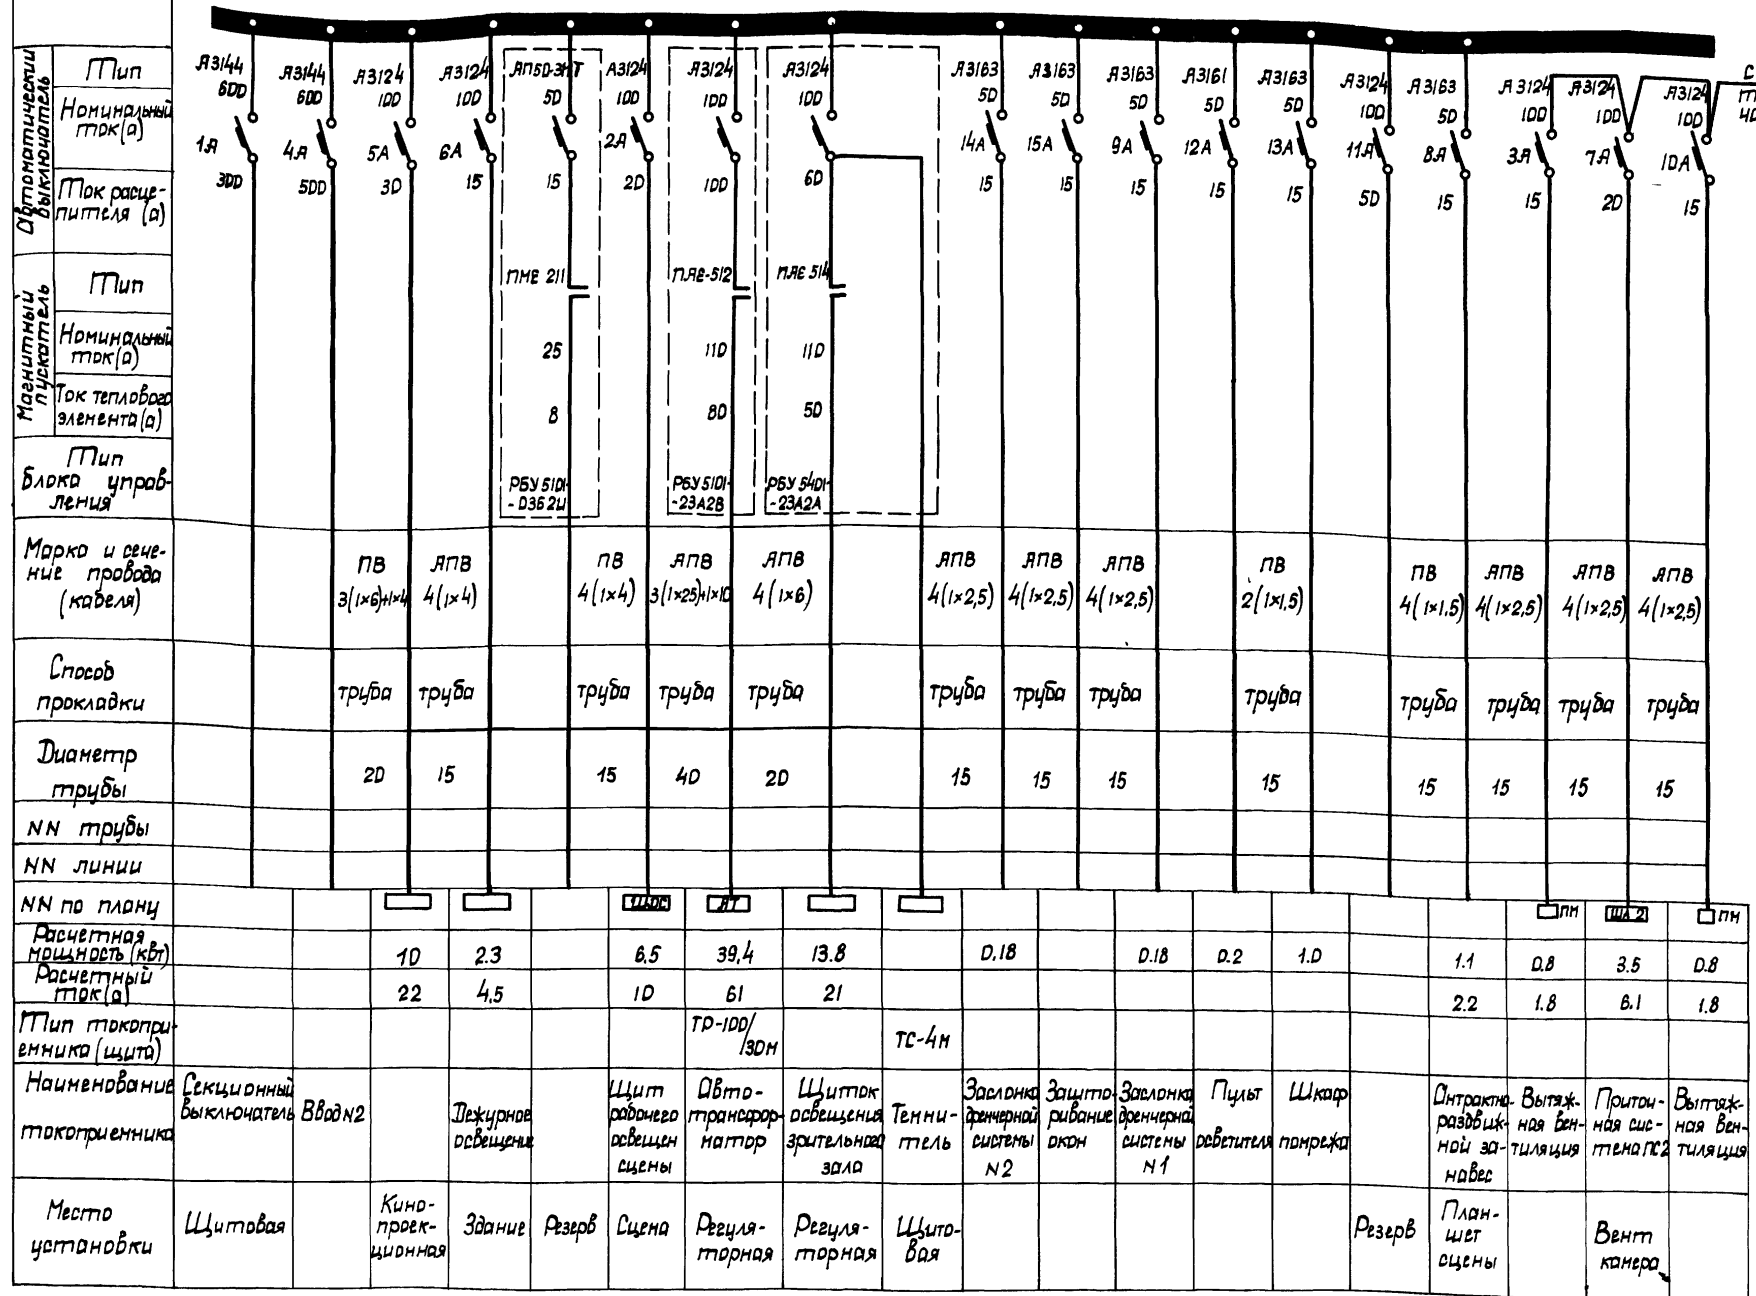 Автоматический выключатель
Тип
А3144 А3144 А3124 А3124 АП50-3МТ А3124 А3124 А3124 А3163 А3163 А3163 А3161 А3163 А3124 А3163 А3124 А3124 А3124
Номинальный ток(а)
600 600 100 100 50 100 100 100 50 50 50 50 50 100 50 100 100 100
1А 4А 5А 6А 2А 14А 15А 9А 12А 13А 11А 8А 3А 7А 10А
Ток расце-
пителя (а)
300 500 30 15 15 20 100 60 15 15 15 15 15 50 15 15 20 15
Магнитный пускатель
Тип
ПМЕ 211 ПАЕ-512 ПАЕ 514
Номинальный ток(а)
25 110 110
Ток теплового
элемента(а)
8 80 50
Тип
блока управ-
ления
РБУ 5101-
-03Б2И
РБУ 5101-
-23А2В
РБУ 5401-
-23А2А
Марка и сече-
ние провода
(кабеля)
ПВ АПВ ПВ АПВ АПВ АПВ АПВ АПВ ПВ ПВ АПВ АПВ АПВ
3(1×6)+1×4 4(1×4) 4(1×4) 3(1×25)+1×10 4(1×6) 4(1×2,5) 4(1×2,5) 4(1×2,5) 2(1×1,5) 4(1×1,5) 4(1×2,5) 4(1×2,5) 4(1×2,5)
Способ
прокладки
труба труба труба труба труба труба труба труба труба труба труба труба труба
Диаметр
трубы
20 15 15 40 20 15 15 15 15 15 15 15 15
NN трубы
NN линии
NN по плану
ЩОС АТ ПМ ШЛ2 ПМ
Расчетная
мощность(квт)
10 2.3 6,5 39,4 13.8 0,18 0.18 0.2 1.0 1.1 0.8 3.5 0.8
Расчетный
ток(а)
22 4,5 10 61 21 2.2 1.8 6.1 1.8
Тип токопри-
емника(щита)
ТР-100/30М
ТС-4М
Наименование
токоприемника
Секционный
выключатель
Ввод N2
Дежурное
освещение
Щит
рабочего
освещен
сцены
Авто-
трансфор-
матор
Щиток
освещения
зрительного
зала
Темни-
тель
Заслонка
дренчерной
системы
N2
Зашто-
ривание
окон
Заслонка
дренчерной
системы
N1
Пульт
осветителя
Шкаф
помрежа
Антрактно-
раздвиж-
ной за-
навес
Вытяж-
ная вен-
тиляция
Приточ-
ная сис-
тема ПС2
Вытяж-
ная вен-
тиляция
Место
установки
Щитовая
Кино-
проек-
ционная
Здание
Резерв
Сцена
Регуля-
торная
Регуля-
торная
Щито-
вая
Резерв
План-
шет
сцены
Вент
камера